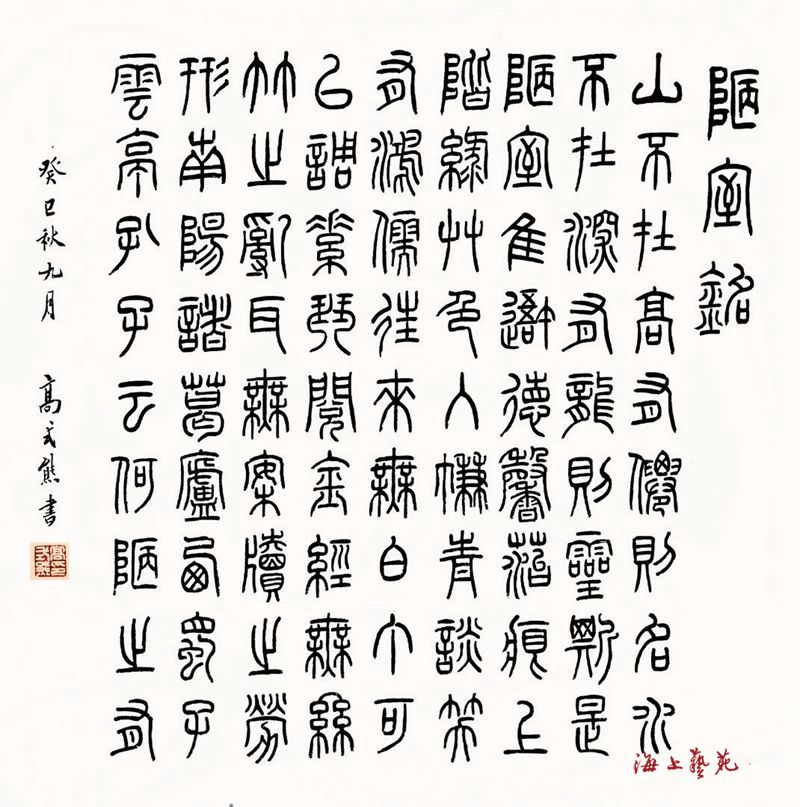 陋室銘
山不在高有僊則名水
不在深有龍則靈斯是
陋室隹吾德馨菭痕上
階綠艸色入㡘青談笑
有鴻儒往來無白丁可
㠯調素琴閱金經無絲
竹之亂耳無案牘之勞
形南陽諸葛廬西蜀子
雲亭孔子云何陋之有
癸巳秋九月 高式熊書
海上藝苑